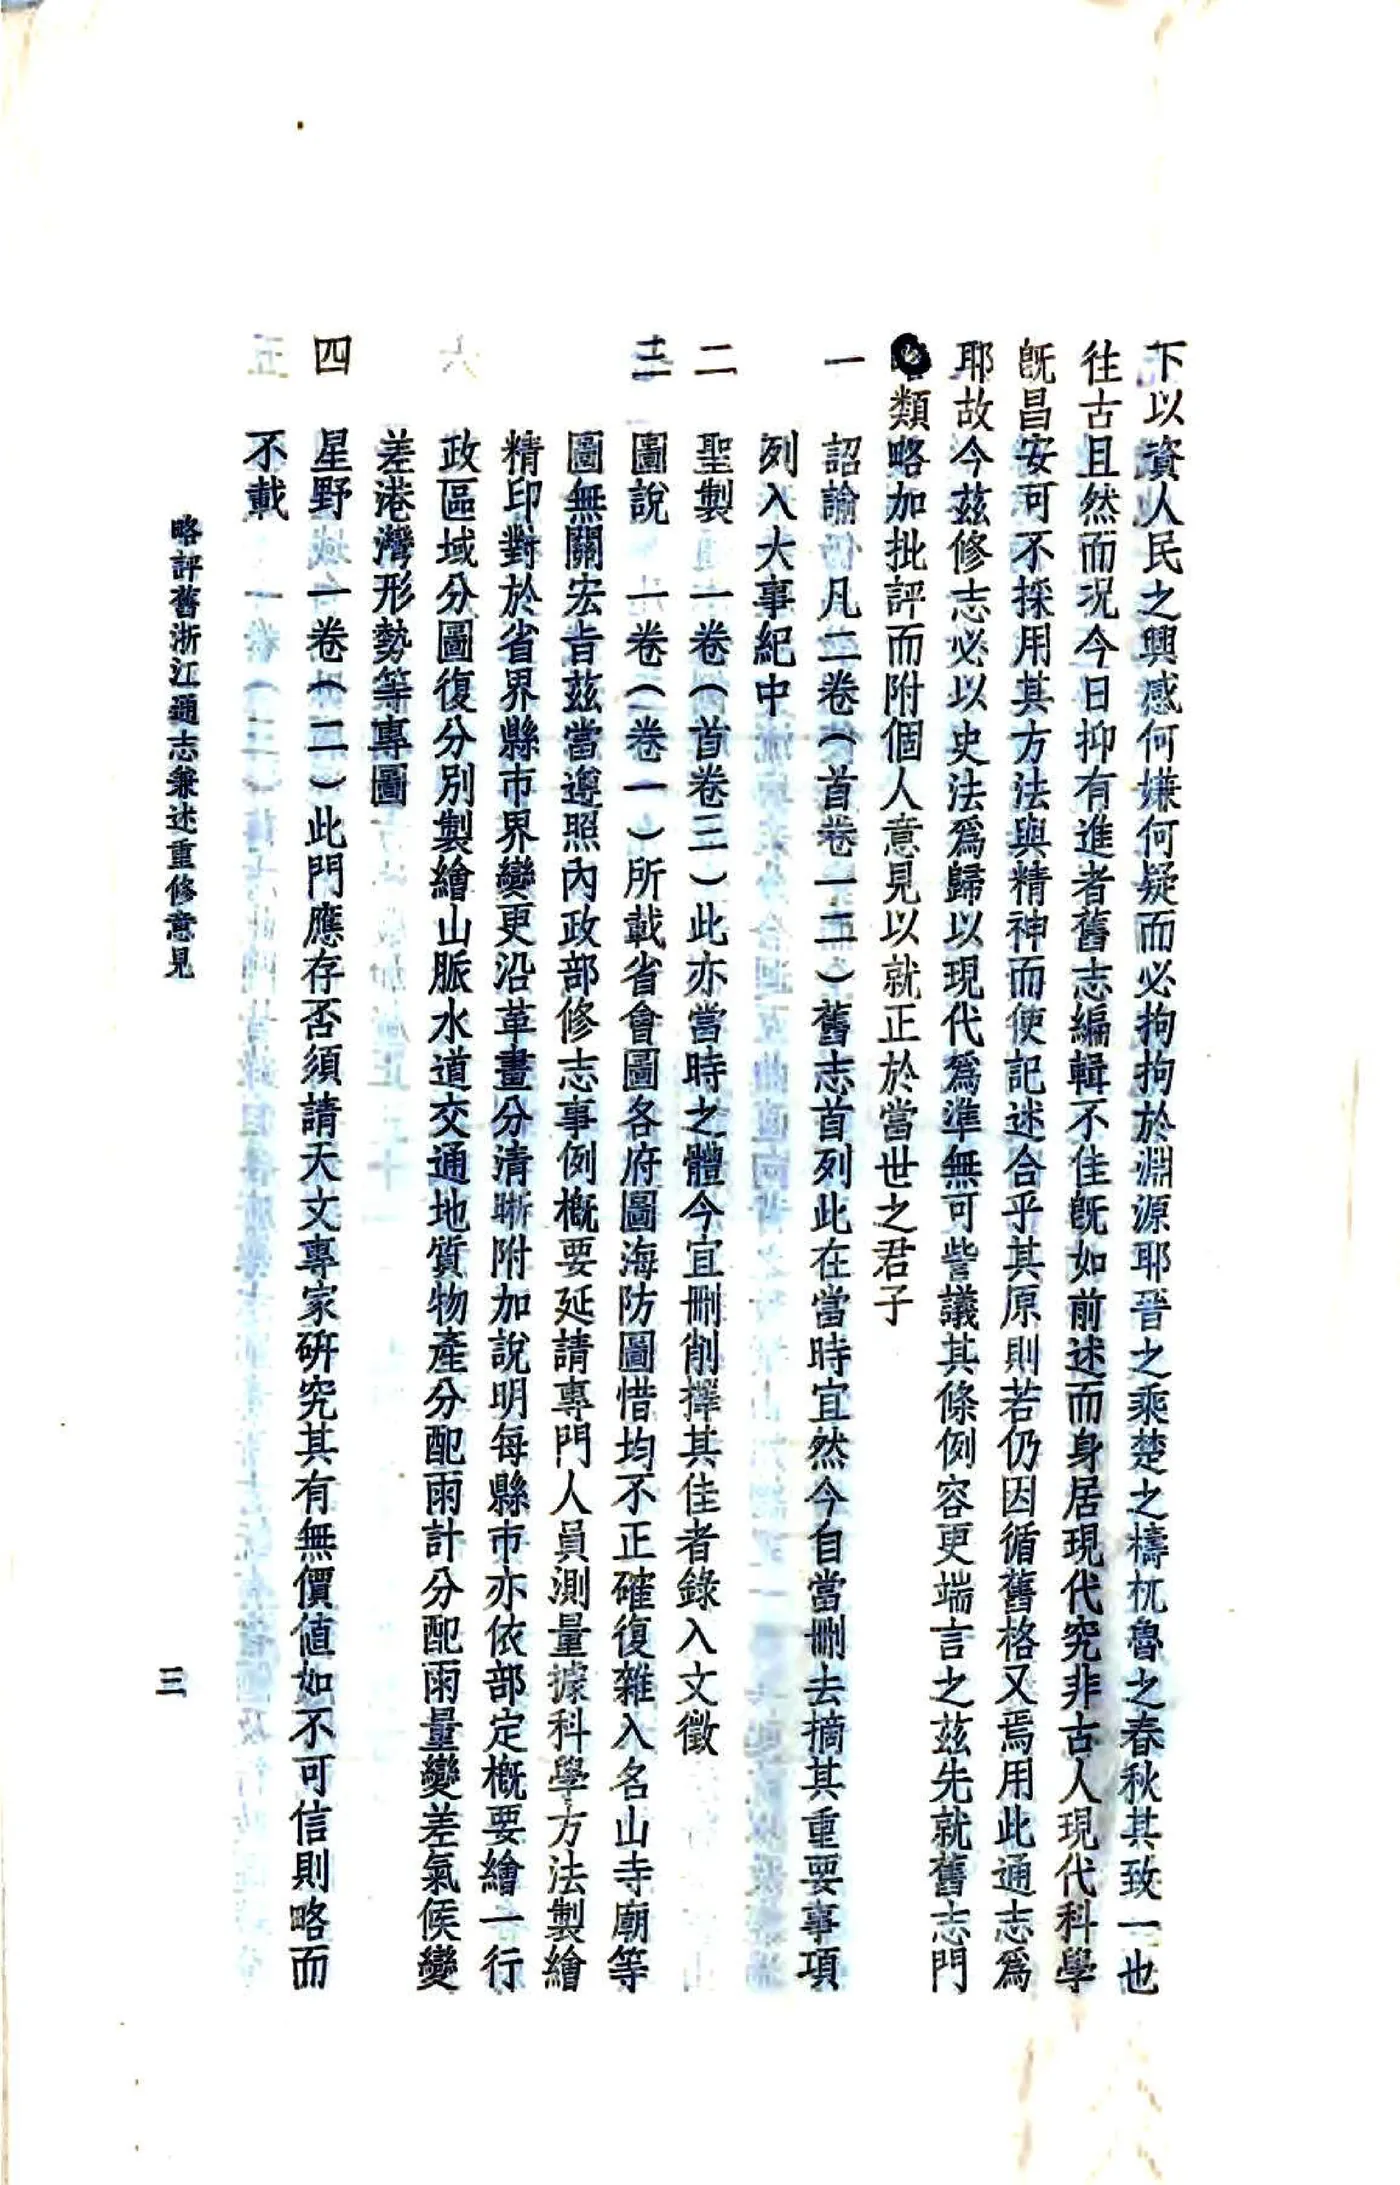 下以資人民之興感何嫌何疑而必拘拘於淵源耶晉之乘楚之檮杌魯之春秋其致一也
往古且然而況今日抑有進者舊志編輯不佳旣如前述而身居現代究非古人現代科學
旣昌安可不採用其方法與精神而使記述合乎其原則若仍因循舊格又焉用此通志爲
耶故今茲修志必以史法爲歸以現代爲準無可訾議其條例容更端言之茲先就舊志門
類略加批評而附個人意見以就正於當世之君子
一 詔諭 凡二卷(首卷一二)舊志首列此在當時宜然今自當刪去摘其重要事項
列入大事紀中
二 聖製 一卷(首卷三)此亦當時之體今宜刪削擇其佳者錄入文徵
三 圖說 一卷(卷一)所載省會圖各府圖海防圖惜均不正確復雜入名山寺廟等
圖無關宏旨茲當遵照內政部修志事例概要延請專門人員測量據科學方法製繪
精印對於省界縣市界變更沿革畫分清晰附加說明每縣市亦依部定概要繪一行
政區域分圖復分別製繪山脈水道交通地質物產分配雨計分配雨量變差氣候變
差港灣形勢等專圖
四 星野 一卷(二)此門應存否須請天文專家研究其有無價值如不可信則略而
不載
略評舊浙江通志兼述重修意見
三